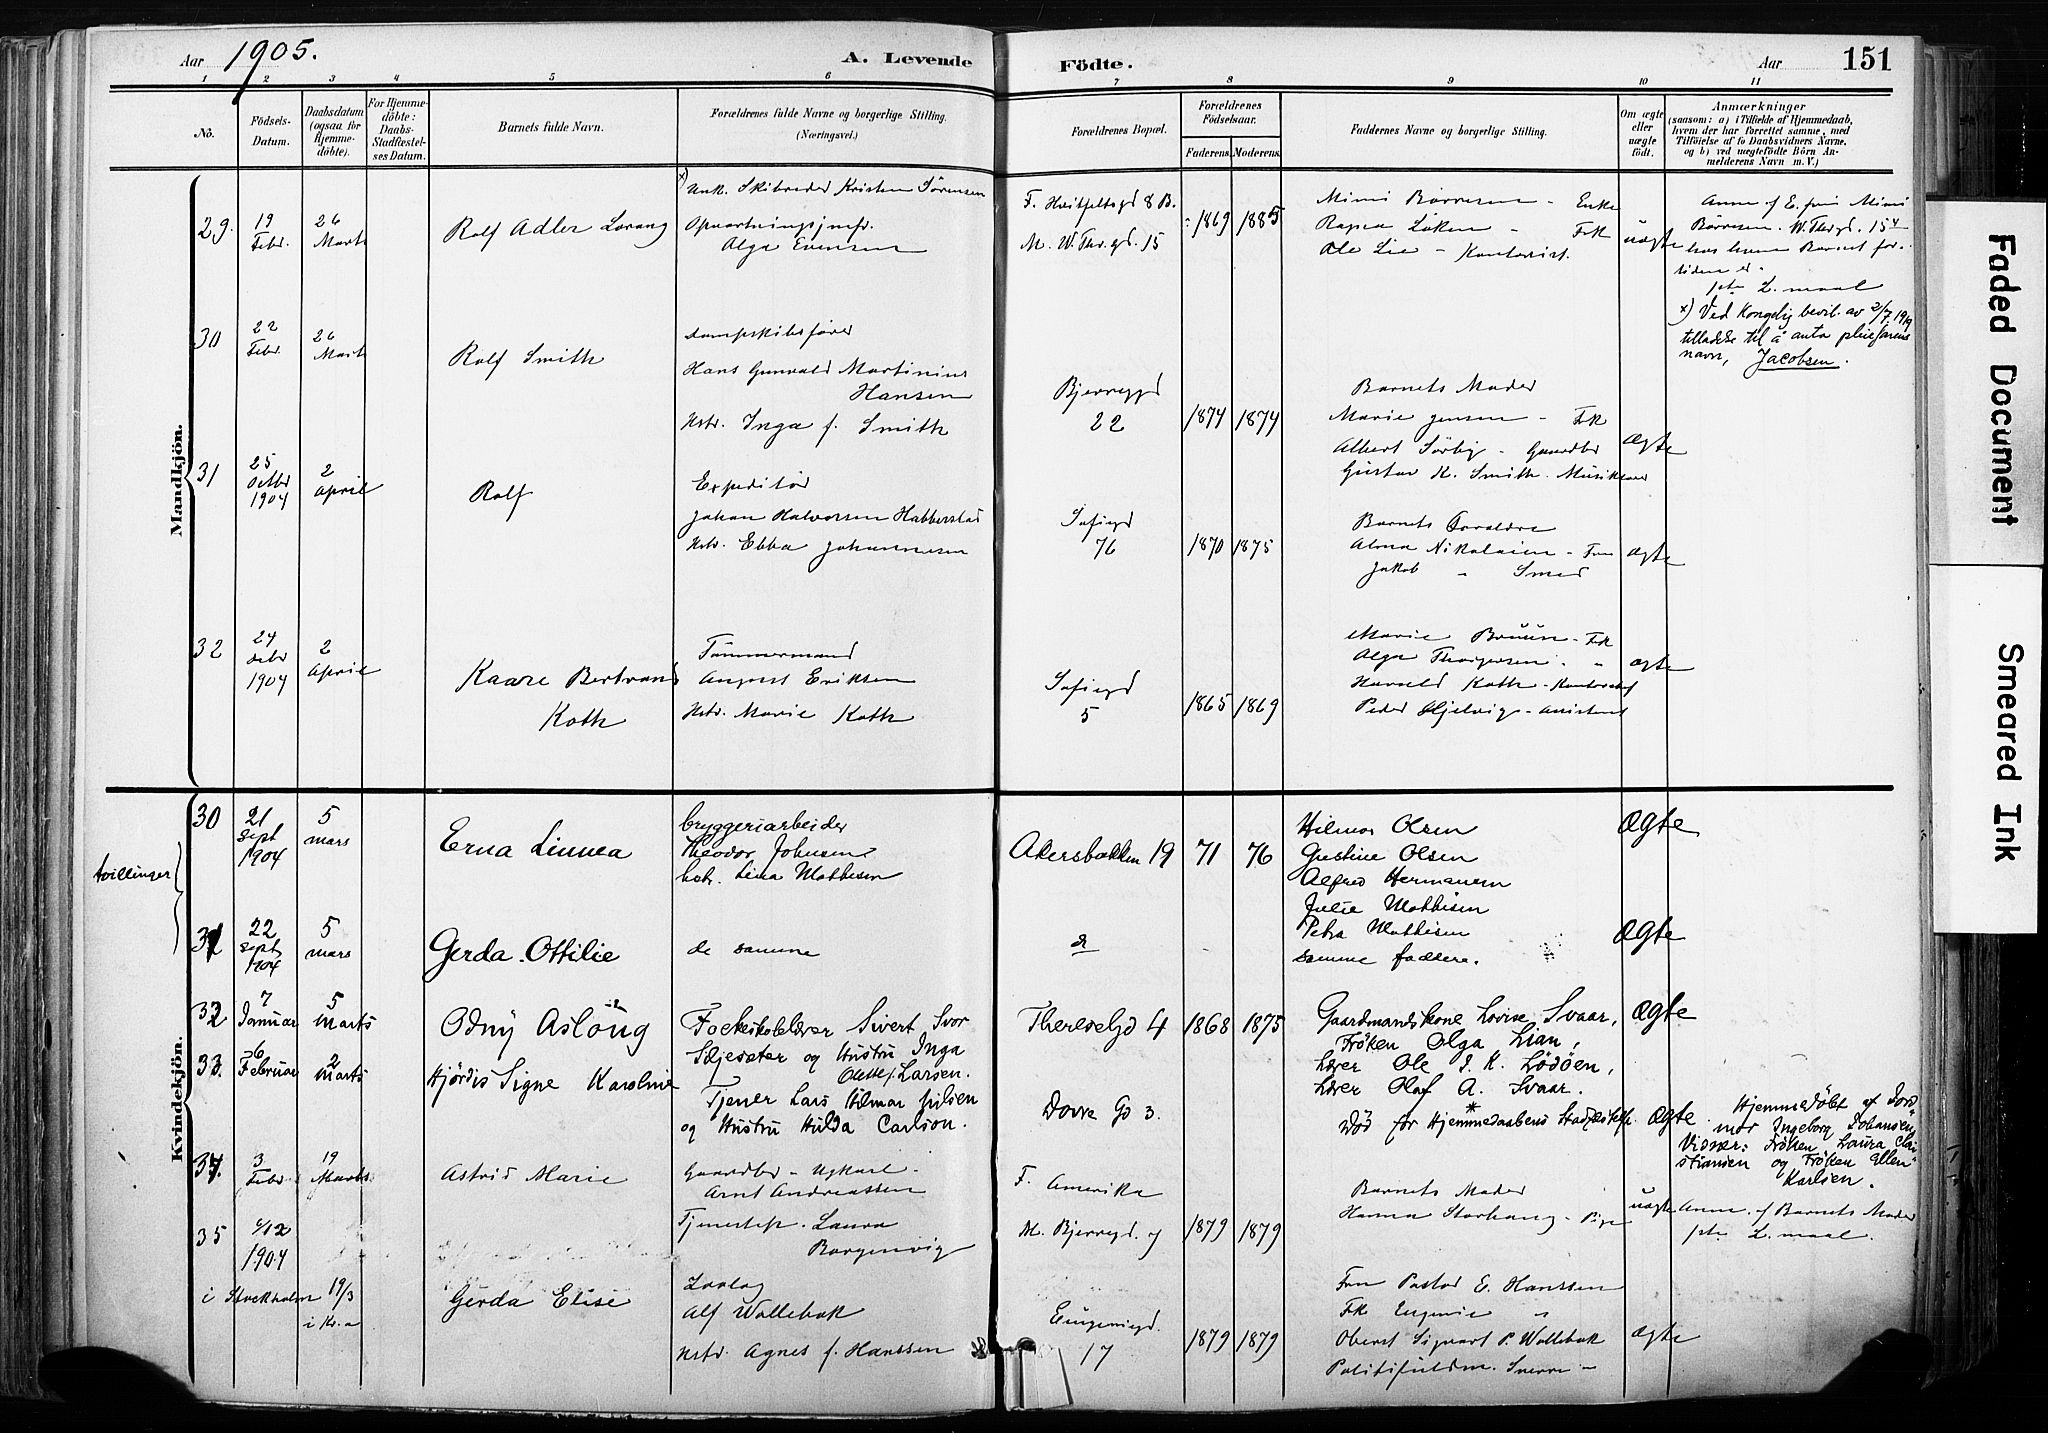 Aar 1905.
A. Levende Födte.
Aar
151
1 2 3 4 5 6 7 8 9 10 11
No.
Födsels-
Datum.
Daabsdatum
(ogsaa for
Hjemme-
döbte).
For Hjemme-
döbte:
Daabs-
Stadfæstel-
ses Datum.
Barnets fulde Navn.
Forældrenes fulde Navne og borgerlige Stilling.
(Næringsvei.)
Forældrenes Bopæl.
Forældrenes
Födselsaar.
Faderens.
Moderens.
Faddernes Navne og borgerlige Stilling.
Om ægte
eller
uægte
födt.
Anmærkninger
(saasom: a) i Tilfælde af Hjemmedaab,
hvem der har forrettet samme, med
Tilföielse af to Daabsvidners Navne,
og b) ved uægtefödte Börn An-
melderens Navn m. V.)
Mandkjön.
29.
19
Febr.
26
Marts
Rolf Adler Lorang
x) Unk. Skibreder Kristian Sörensen
Opvartningsjmfr.
Olga Evensen
F. Hvitfeldtsgd 8 B.
M. W. Thr. gd. 15
1869 1885
Mimi Börresen - Enke
Ragna Löken - Frk
Ole Lie - Kontorist.
uægte
Anm. af E. fru Mimi
Börresen. W. Thrgd. 15
hos hvem Barnet for-
tiden er.
ptr. L. maal
x) Ved Kongelig bevil. av 2/7. 1919
tilladelse til å anta pleiefarens
navn, Jacobsen.
30
22
Febr.
26
Marts
Rolf Smith
Dampskibsförer
Hans Gunvald Martinius
Hansen
Hstr. Inga f. Smith
Bjerregd
22
1874 1874
Barnets Moder
Marie Jensen - Frk
Albert Sörby - Gaardbr
Gustav K. Smith - Musiklærer
ægte
31
25
Octbr
1904
2
April
Rolf
Expeditör
Johan Halvorsen Habberstad
Hstr. Ebba Johannesen
Sofiegd
76
1870 1875
Barnets Forældre
Alma Nikolaisen - Fru
Jakob " Smed
ægte
32
24
Octbr
1904
2
April
Kaare Bertrand
Koth
Tömmermand
August Eriksen
Hstr. Marie Koth
Sofiegd
5
1865 1869
Marie Bruun - Frk
Olga Thorgersen - "
Harald Koth - Kontorchef
Peder Hjelvig - Assistent
ægte
Kvindekjön.
tvillinger
30
21
sept
1904
5
mars
Erna Linnea
bryggeriarbeider
Theodor Johnsen
hstr. Lina Mathisen
Akersbakken 19
71 76
Hilmar Olsen
Gustine Olsen
Alfred Hermansen
Julie Mathisen
Petra Mathisen
ægte
31
22
sept
1904
5
mars
Gerda Ottilie
de samme
samme faddere.
ægte
32
7
Januar
5
Marts
Odny Aslöug
Folkeskolelærer Sivert Ivor
Sæjeseter og Hustru Inga
Olette f. Larsen.
Theresesgd 4
1868 1875
Gaardmandskone Lovise Svaar,
Fröken Olga Lian,
Lærer Ole J. K. Lödöen,
Lærer Olaf A. Svaar.
ægte
33.
6
Februar
2
Marts
Hjördis Signe Karoline
Tjener Lars Hilmar Nilsen
og Hustru Hulda Carlson.
Dovre Gd 3.
Död før Hjemmedaabens Stadfæstelse.
ægte.
Hjemmedöbt af Jord-
mor Ingeborg Johansen
Vidner: Fröken Laura Chri-
stiansen og Fröken Ellen
Karlsen.
34.
3
Febr.
19
Marts
Astrid Marie
Gaardbr - Ugkarl -
Arnt Andreassen
Tjenestep. Laura
Borgenvig
F. Amerika
M. Bjerregd. 7
1879 1879
Barnets Moder
Hanna Storhaug - Pige
uægte
Anm. af Barnets Moder
ptr. L. maal.
35
6/12
1904
i Stockholm
19/3
i Kr.a
Gerda Elise
Zoolog
Alf Wollebæk
Hstr. Agnes f. Hanssen
Eugeniegd.
17
1879 1879
Fru Pastor E. Hanssen
Frk Eugenie "
Oberst Sigvart P. Wollebæk
Politifuldm. Sverre "
ægte
Faded Document
Smeared Ink